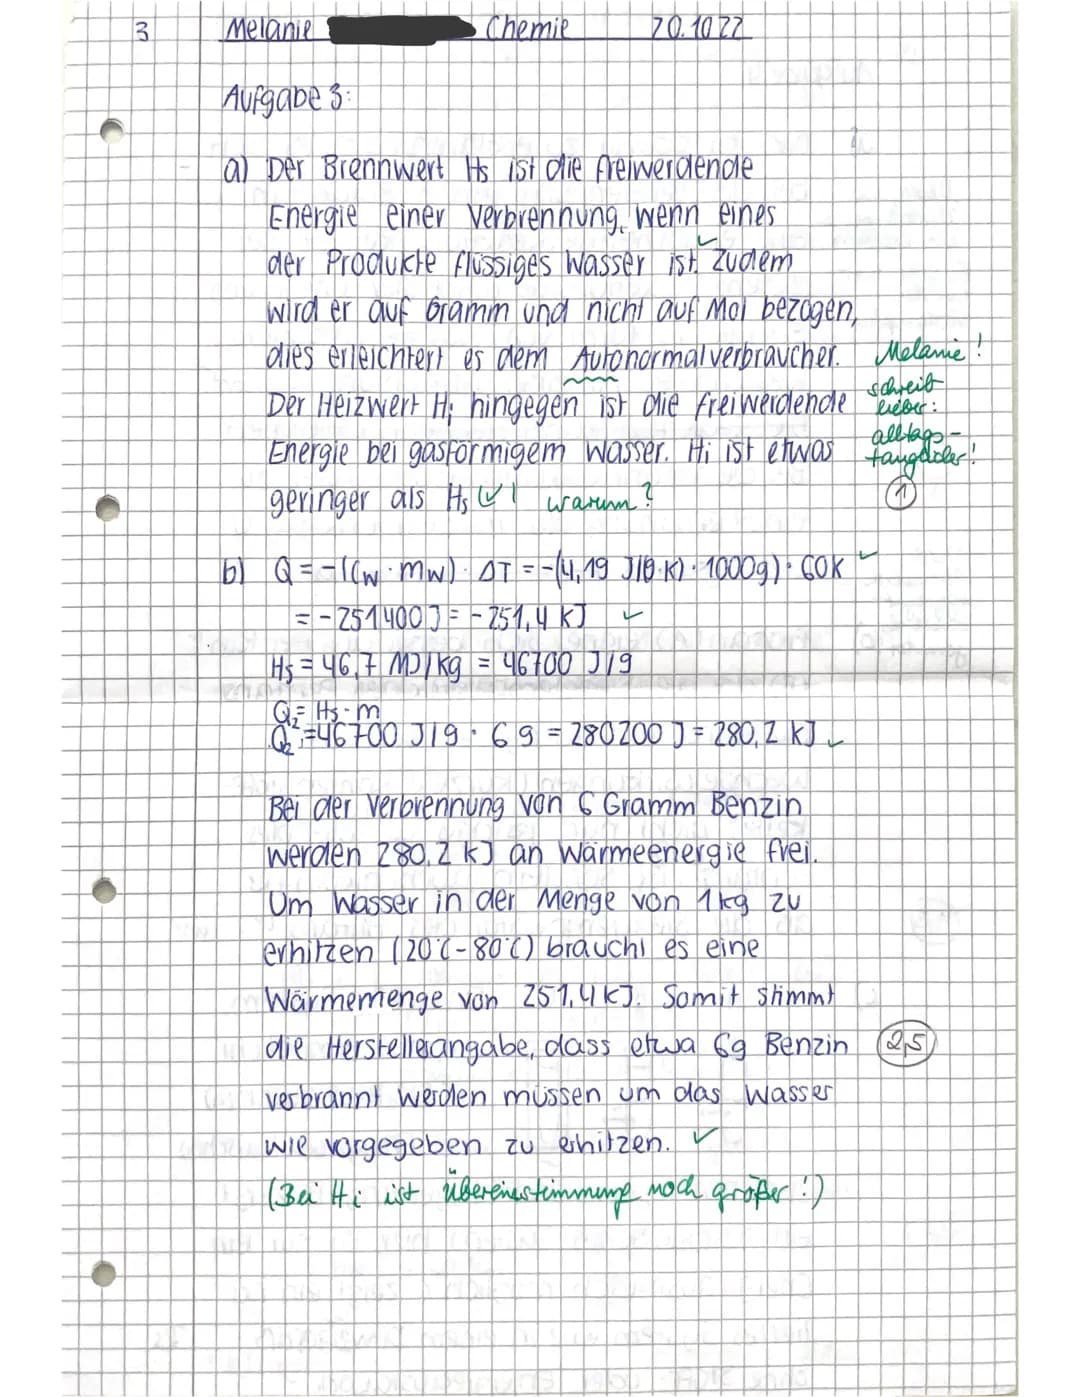 3 Melanie Chemie 20.10.22
Aufgabe 3:
a) Der Brennwert Hs ist die freiwerdende
Energie einer Verbrennung, wenn eines
der Produkte flüssiges Wasser ist. ✓ Zudem
wird er auf Gramm und nicht auf Mol bezogen,
dies erleichtert es dem Autonormalverbraucher. Melanie!
schreib
Der Heizwert Hi hingegen ist die freiwerdende lieber:
Energie bei gasförmigem Wasser. Hi ist etwas alltags-
tauglicher!
geringer als Hs (✓) warum? 1
b) Q = -(cw · mw) · ΔT = -(4,19 J/(g·K) · 1000g) · 60K ✓
= -251400 J = -251,4 kJ ✓
Hs = 46,7 MJ/kg = 46700 J/g
Q2 = Hs · m
Q2 = 46700 J/g · 6 g = 280200 J = 280,2 kJ ✓
Bei der Verbrennung von 6 Gramm Benzin
werden 280,2 kJ an Wärmeenergie frei.
Um Wasser in der Menge von 1kg zu
erhitzen (20°C-80°C) braucht es eine
Wärmemenge von 251,4 kJ. Somit stimmt
die Herstellerangabe, dass etwa 6g Benzin 2,5
verbrannt werden müssen um das Wasser
wie vorgegeben zu erhitzen. ✓
(Bei Hi ist Übereinstimmung noch größer!)